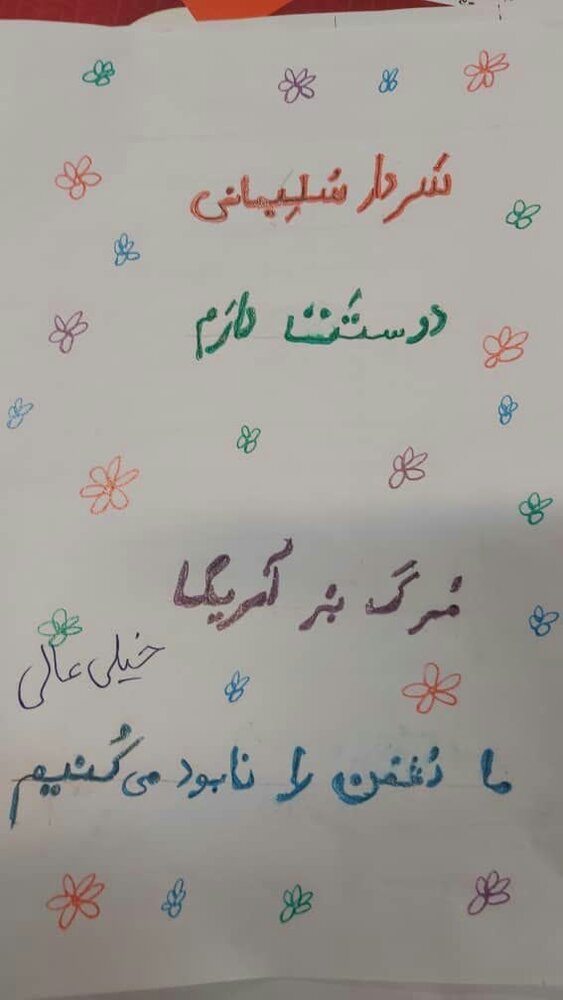 سَردار سُلِیمانی
دوسَتَت دارَم
مَرگ بَر آمریکا
خیلی عالی
ما دُشمَن را نابود می‌کُنیم